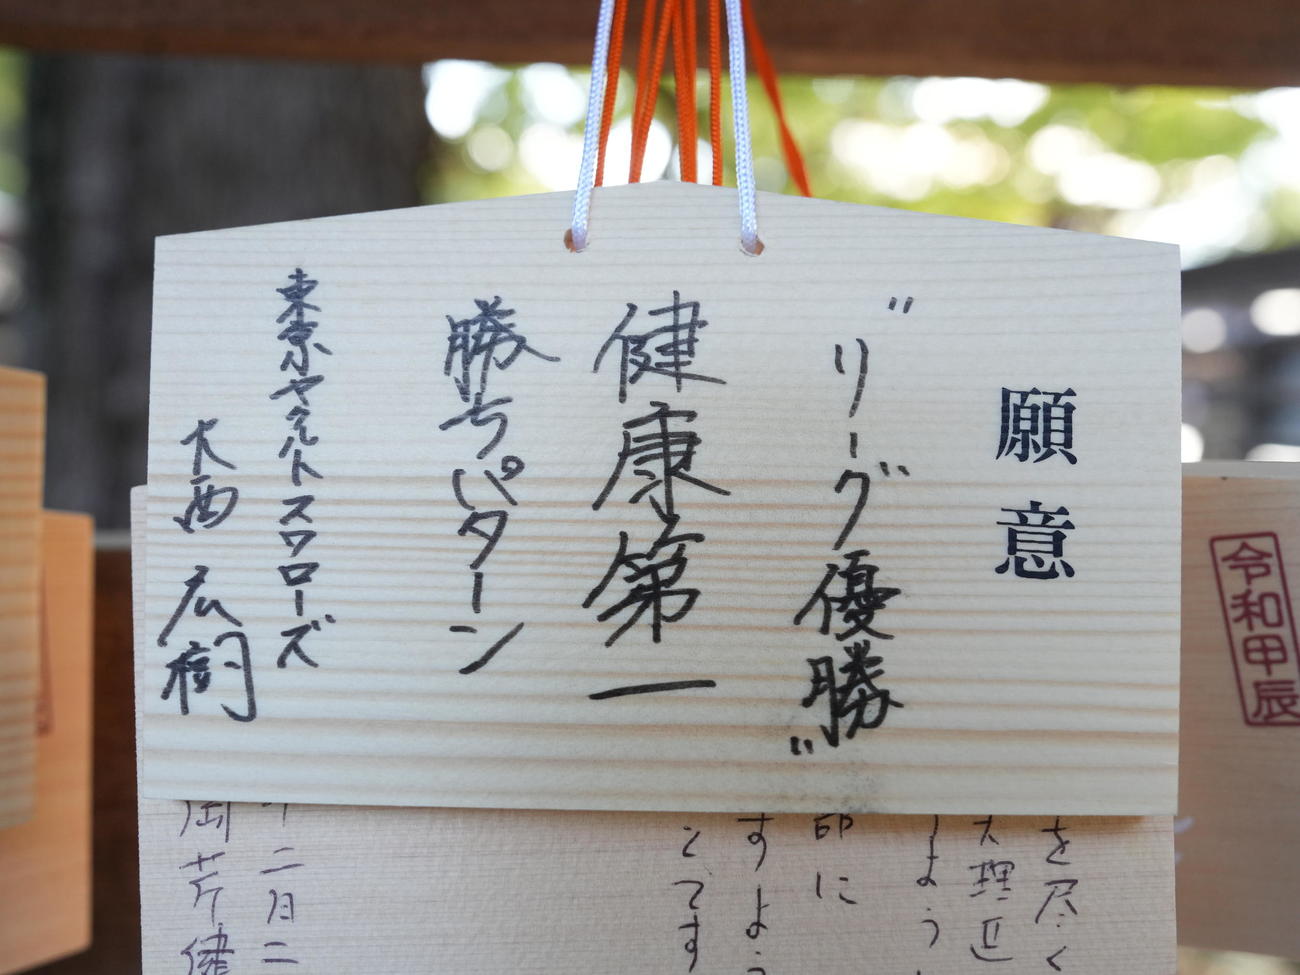 願意
"リーグ優勝"
健康第一
勝ちパターン
東京ヤクルトスワローズ
大西 広樹
令和甲辰
を尽く
大理近
しよう
印に
すよう
とです
二月二
岡芹健